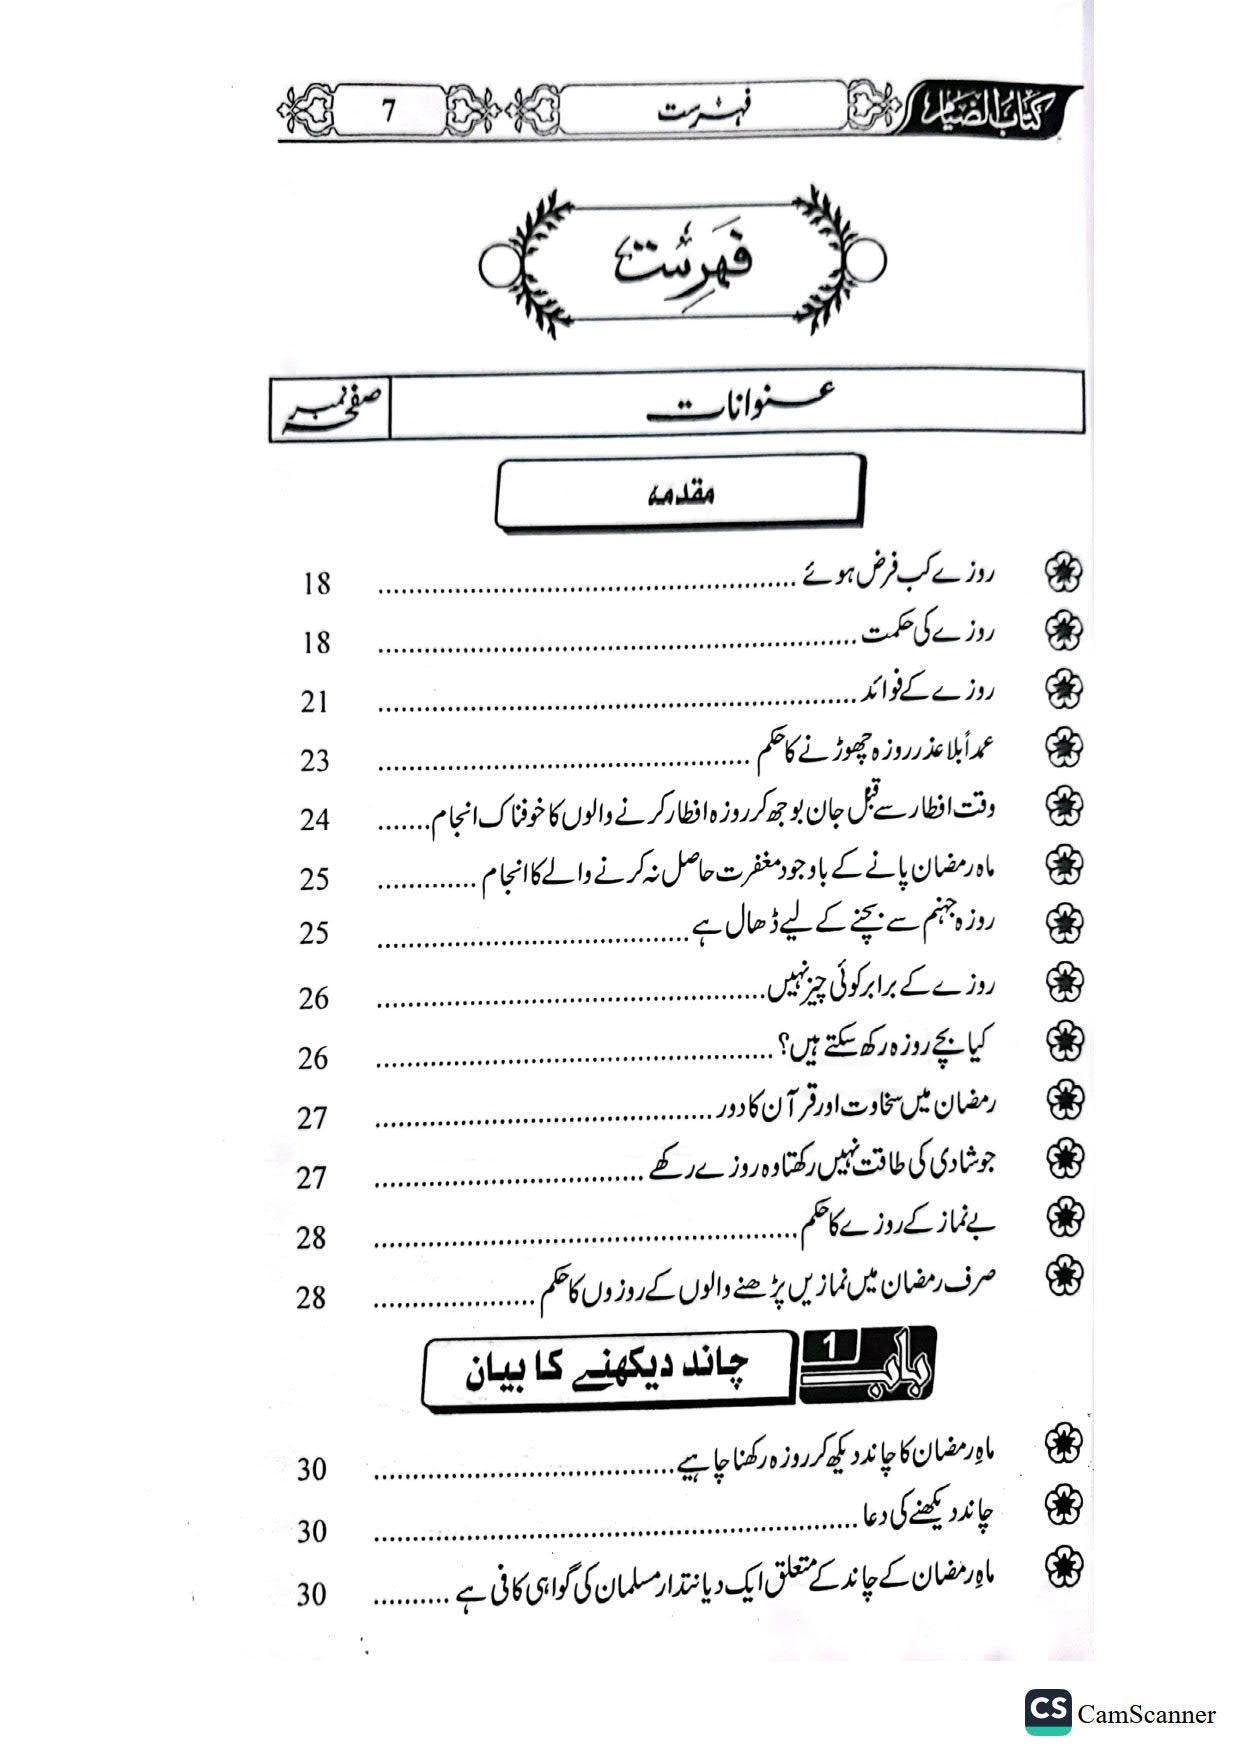 کتاب الصیام فہرست 7
فہرست
عنوانات صفحہ نمبر
مقدمہ
روزے کب فرض ہوئے ........ 18
روزے کی حکمت ........ 18
روزے کے فوائد ........ 21
عمداً بلا عذر روزہ چھوڑنے کا حکم ........ 23
وقت افطار سے قبل جان بوجھ کر روزہ افطار کرنے والوں کا خوفناک انجام ....... 24
ماہ رمضان پانے کے باوجود مغفرت حاصل نہ کرنے والے کا انجام ........ 25
روزہ جہنم سے بچنے کے لیے ڈھال ہے ........ 25
روزے کے برابر کوئی چیز نہیں ........ 26
کیا بچے روزہ رکھ سکتے ہیں؟ ........ 26
رمضان میں سخاوت اور قرآن کا دور ........ 27
جو شادی کی طاقت نہیں رکھتا وہ روزے رکھے ........ 27
بے نماز کے روزے کا حکم ........ 28
صرف رمضان میں نمازیں پڑھنے والوں کے روزوں کا حکم ........ 28
باب 1 چاند دیکھنے کا بیان
ماہِ رمضان کا چاند دیکھ کر روزہ رکھنا چاہیے ........ 30
چاند دیکھنے کی دعا ........ 30
ماہِ رمضان کے چاند کے متعلق ایک دیانتدار مسلمان کی گواہی کافی ہے .......... 30
CS CamScanner